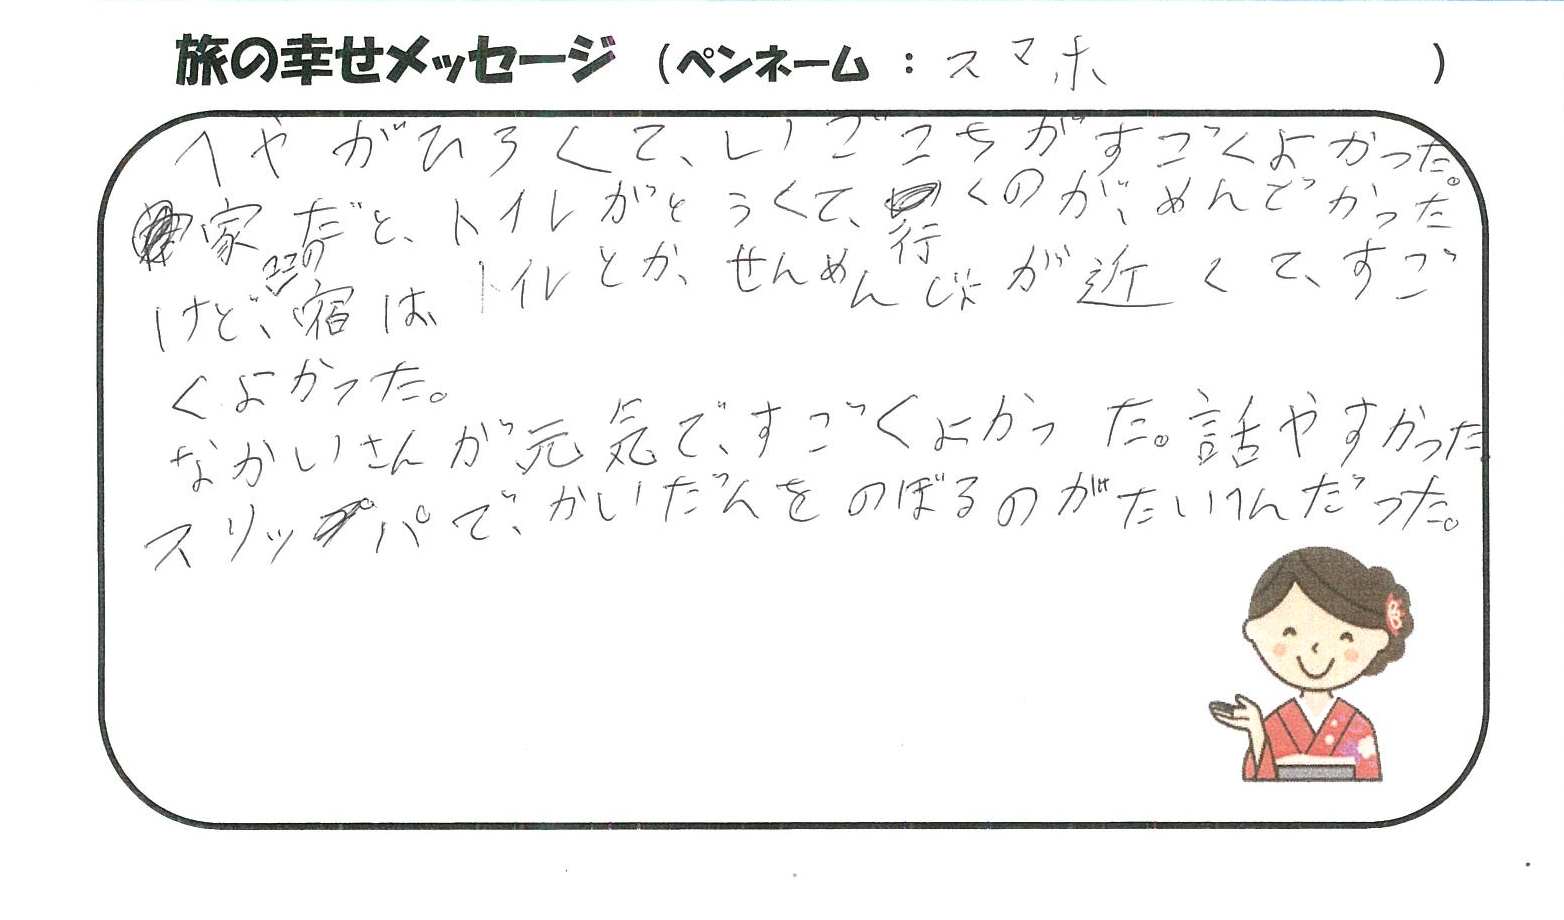 旅の幸せメッセージ （ペンネーム ： スマホ ）
へやがひろくて、いごこちがすごくよかった。
家だと、トイレがとうくて、行くのが、めんどかった
けど、ココの宿は、トイレとか、せんめんじょが近くて、すご
くよかった。
なかいさんが元気で、すごくよかった。話やすかった
スリッパで、かいだんをのぼるのがたいへんだった。